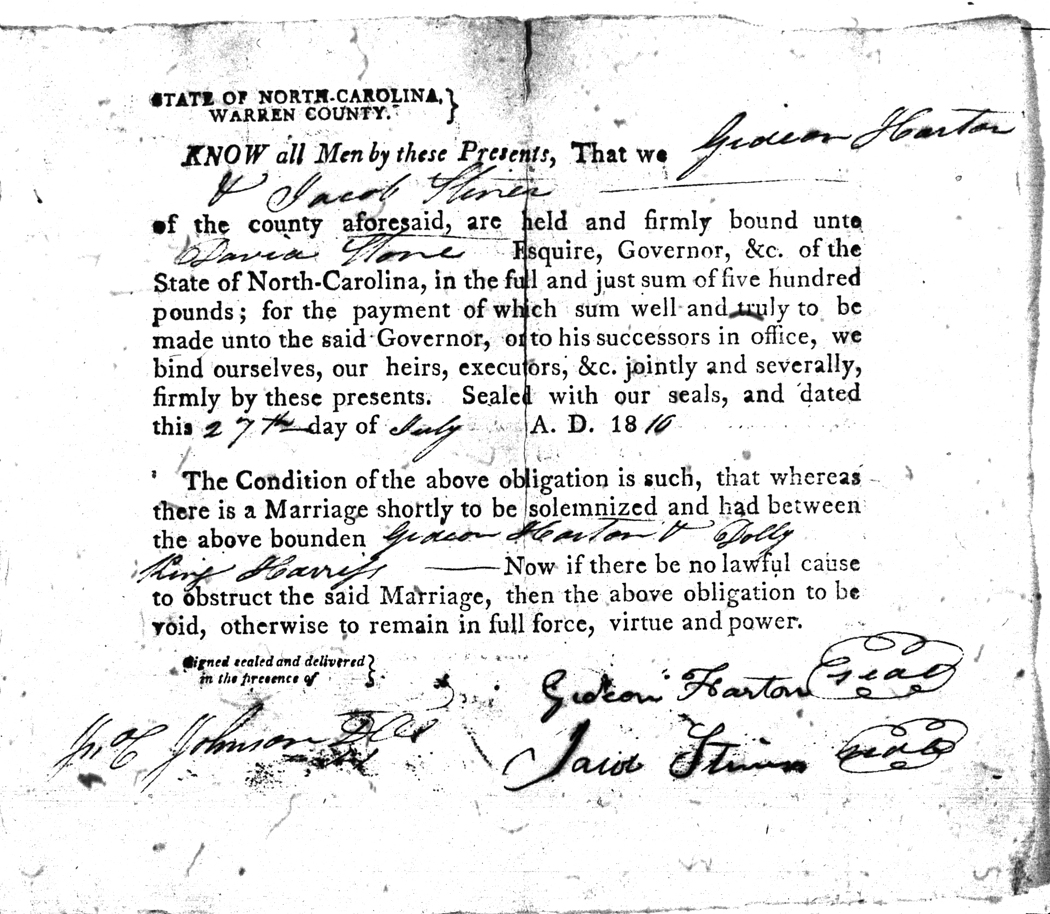 STATE OF NORTH-CAROLINA,
WARREN COUNTY.
KNOW all Men by these Presents, That we Gideon Harton
& Jacob Stiner
of the county aforesaid, are held and firmly bound unto
David Stone Esquire, Governor, &c. of the
State of North-Carolina, in the full and just sum of five hundred
pounds; for the payment of which sum well and truly to be
made unto the said Governor, or to his successors in office, we
bind ourselves, our heirs, executors, &c. jointly and severally,
firmly by these presents. Sealed with our seals, and dated
this 27th day of July A. D. 1810
The Condition of the above obligation is such, that whereas
there is a Marriage shortly to be solemnized and had between
the above bounden Gideon Harton & Dolly
King Harriss Now if there be no lawful cause
to obstruct the said Marriage, then the above obligation to be
void, otherwise to remain in full force, virtue and power.
Signed sealed and delivered
in the presence of
Gideon Harton seal
Jno C Johnson
Jacob Stiner seal